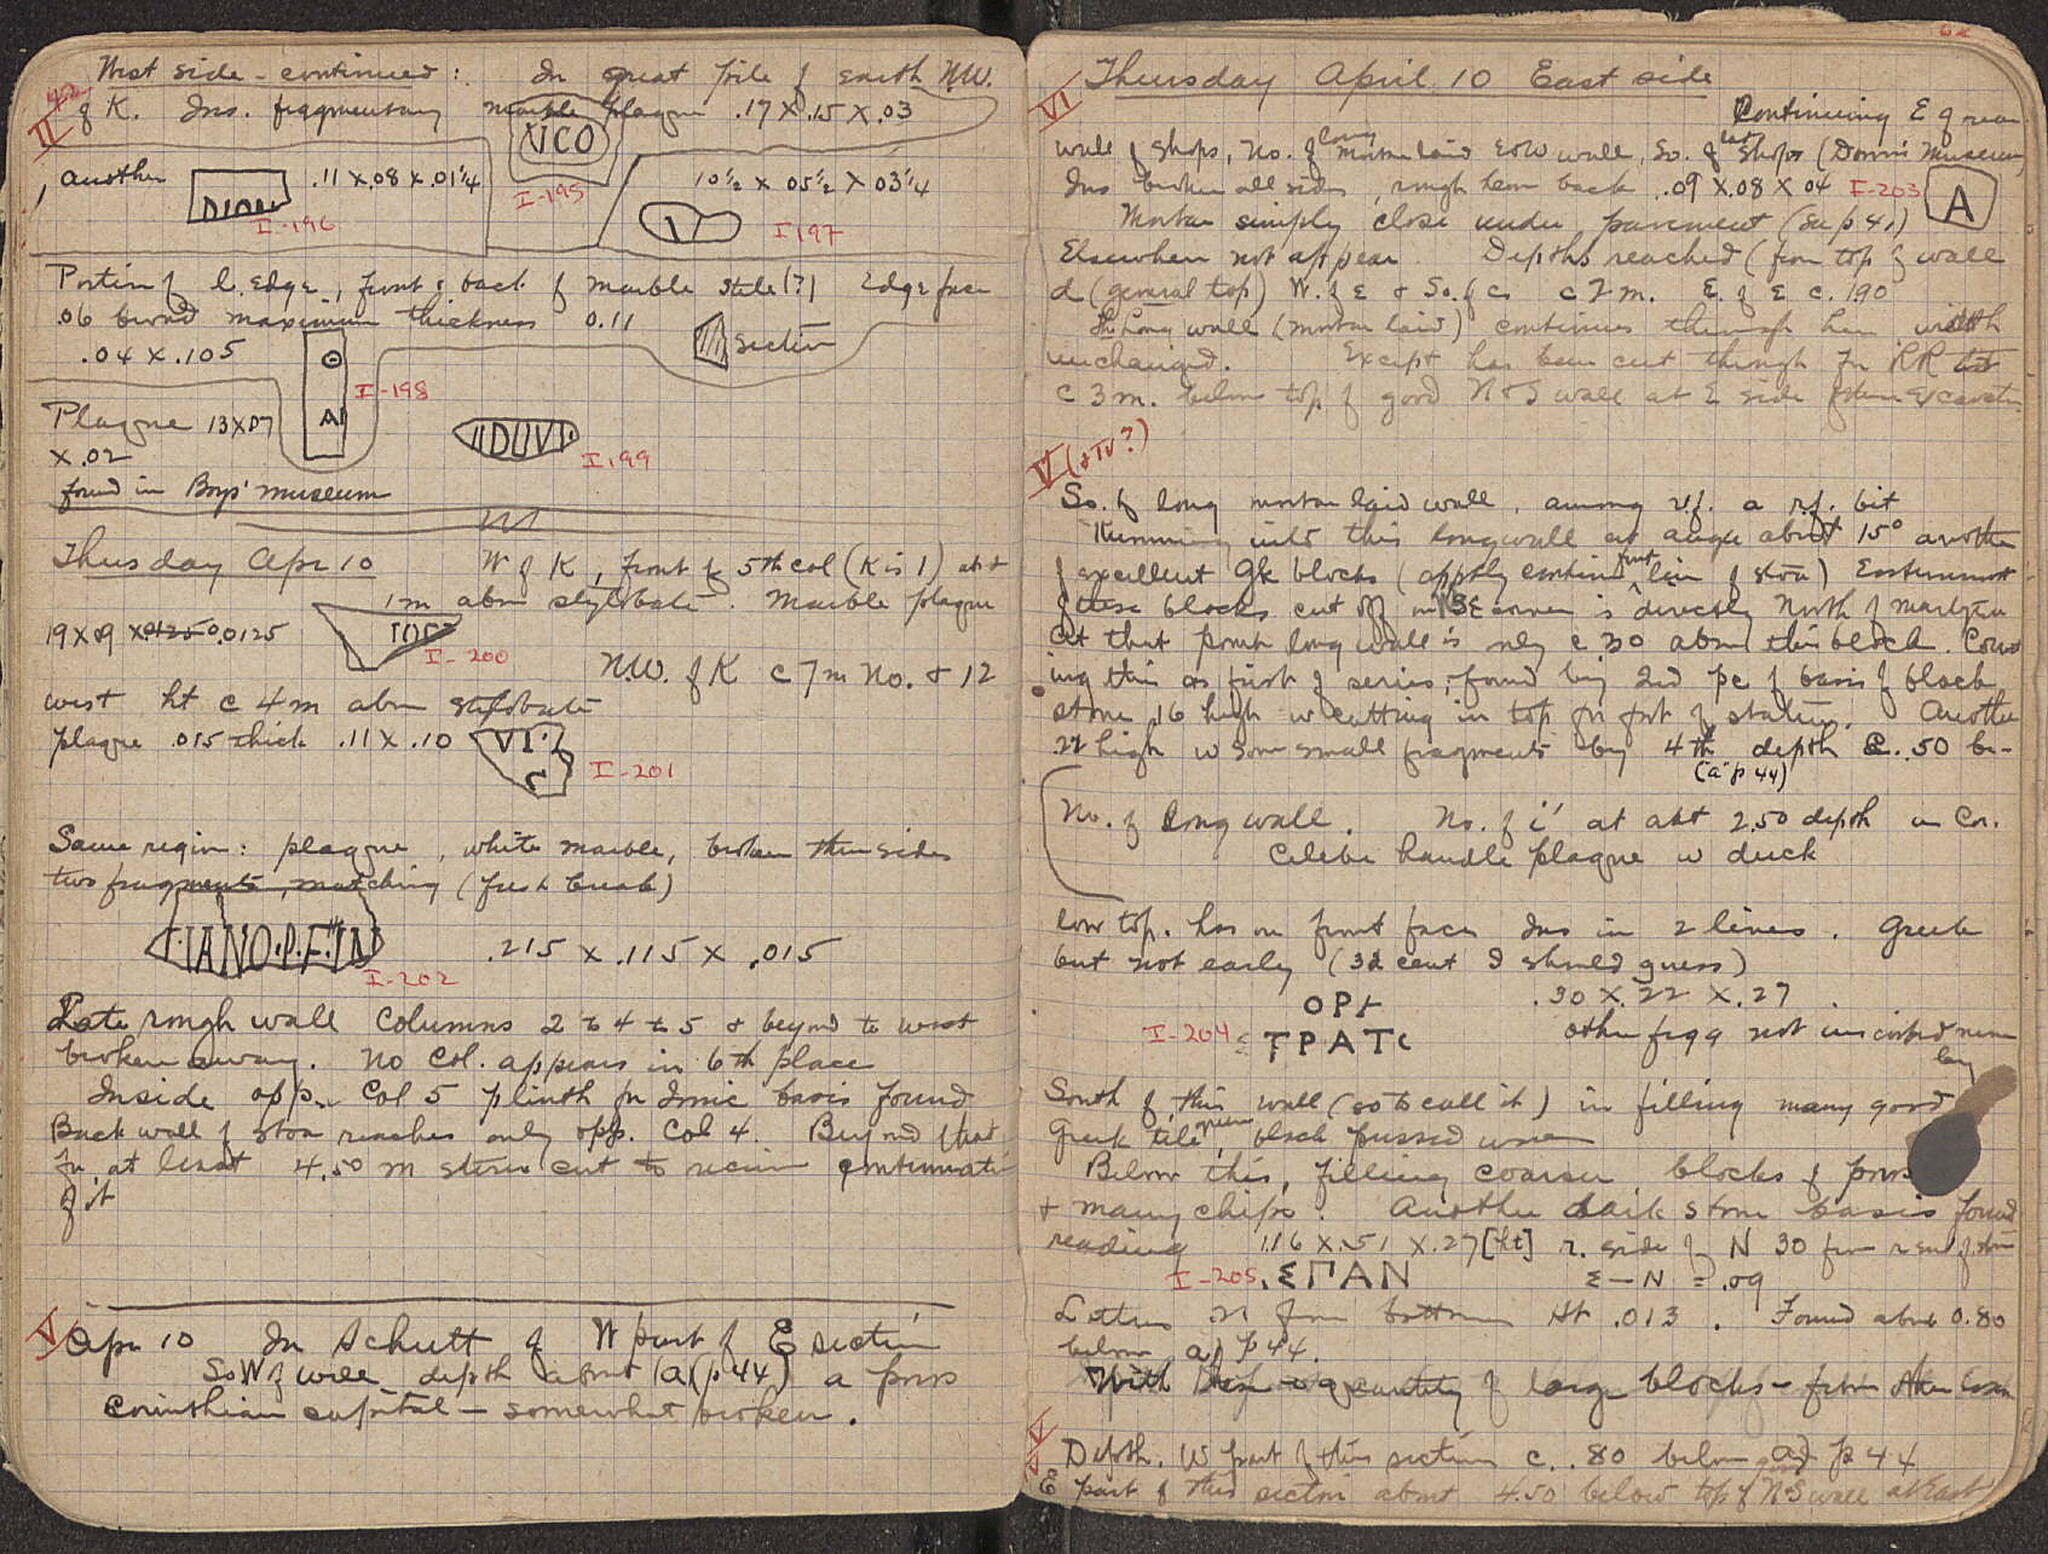 West side - continued: In great pile of earth N.W.
II
of K. Ins. fragmentary marble plaque .17 X .15 X .03
VCO
I-195
another .11 X .08 X .01 1/4
DION
I-196
10 1/2 X 05 1/2 X 03 1/4
I-197
Portion of l. edge, front & back of marble stele (?) Edge face
.06 broad maximum thickness 0.11
section
.04 X .105
Θ
AI
I-198
Plaque 13 X 07
X .02
DUVI
I-199
found in Boys' museum
Thursday Apr 10 W of K, front of 5th col (K is 1) abt
1 m above stylobate. Marble plaque
19 X 09 X .0125 .0125
I-200
N.W. of K c 7 m No. & 12
west ht c 4 m above stylobate
plaque .015 thick .11 X .10
VI
I-201
Same region: plaque, white marble, broken three sides
two fragments, matching (fresh break)
IANO.P.F.IN
.215 X .115 X .015
I-202
Late rough wall columns 2 to 4 to 5 & beyond to west
broken away. No Col. appears in 6th place
Inside opp. Col 5 plinth for Ionic basis found
Back wall of stoa reaches only opp. Col 4. Beyond that
for at least 4.50 m stereo cut to receive continuation
of it
V
Apr 10 In Schutt of W part of E section
So W of wall depth about (a) (p 44) a poros
Corinthian capital - somewhat broken.
VI
Thursday April 10 East side
Continuing E of rear
wall of shops, No. of long mortar laid E & W wall, So. of late shops (Down's Museum)
Ins broken all sides, rough hewn back .09 X .08 X 04 I-203
A
Mortar simply close under pavement (see p 41)
Elsewhere not appear. Depths reached (from top of wall
d (general top) W. of E & So. of c c 2 m. E. of E c. 1.90
The long wall (mortar laid) continues through here width
unchanged. Except has been cut through for RR
c 3 m. below top of good N & S wall at E side of these excavations
V (& IV?)
So. of long mortar laid wall, among v.f. a r.f. bit
Running into this long wall at angle about 15° another
of excellent Gk blocks (apptly contin front line of stoa) Easternmost
of these blocks cut off on SE corner is directly North of
at that point long wall is only c .30 above this block. Count
ing this as first of series, found by 2nd pc of basis of black
stone .16 high w cutting in top for foot of statue. Another
.22 high w some small fragments by 4th depth c. .50 be-
("a" p 44)
No. of long wall. No. of i' at abt 2.50 depth a Cor.
Celebe handle plaque w duck
low top. has on front face Ins in 2 lines. Greek
but not early (3d cent I should guess)
OPI .30 X .22 X .27.
I-204 ΤΡΑΤC other frgg not inscribed near
by
South of this wall (so to call it) in filling many good
Greek tile, black pressed ware
Below this, filling coarser blocks of poros
& many chips. Another dark stone basis found
reading 1.16 X .51 X .27 [ht] r. side of N 30 from r end of stone
I-205 .ΕΠΑΝ Ε - Ν = .09
Letters from bottom Ht .013. Found about 0.80
below a) p 44.
With these a quantity of large blocks - from
V
Depth. W part of this section c. .80 below a) p 44
E part of this section about 4.50 below top of N-S wall at East